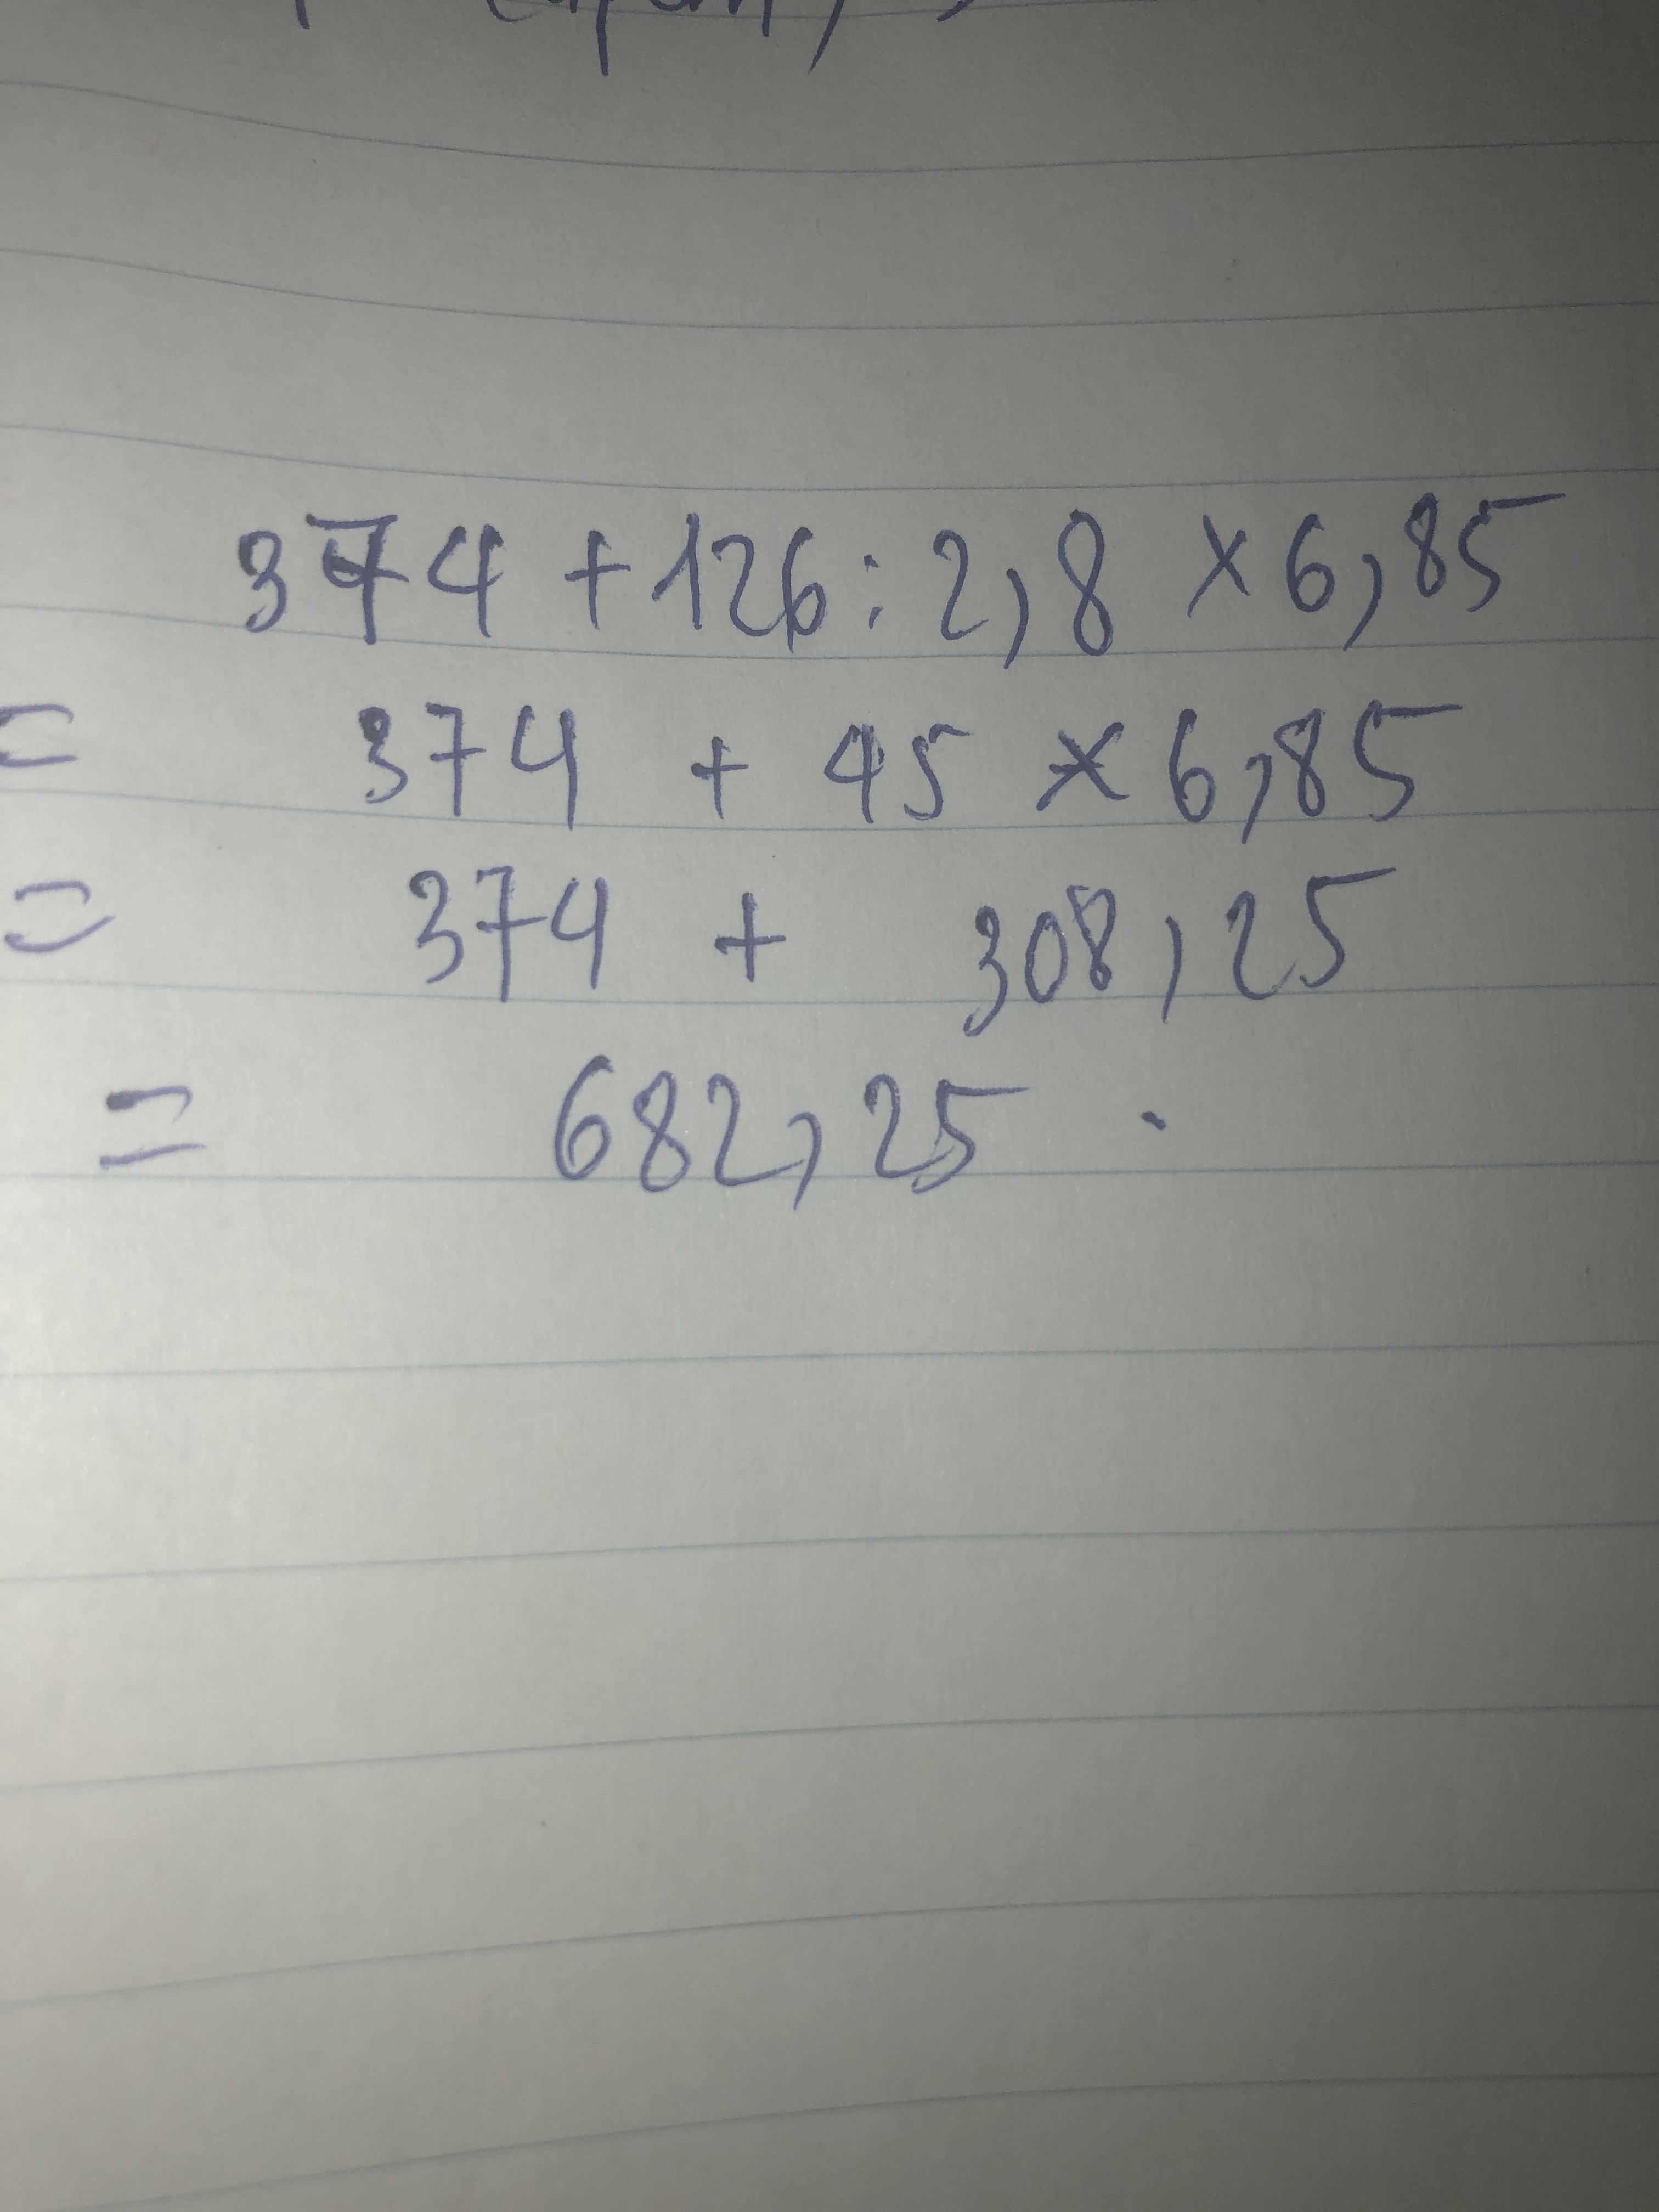 374 + 126 : 2,8 × 6,85
= 374 + 45 × 6,85
= 374 + 308,25
= 682,25 .